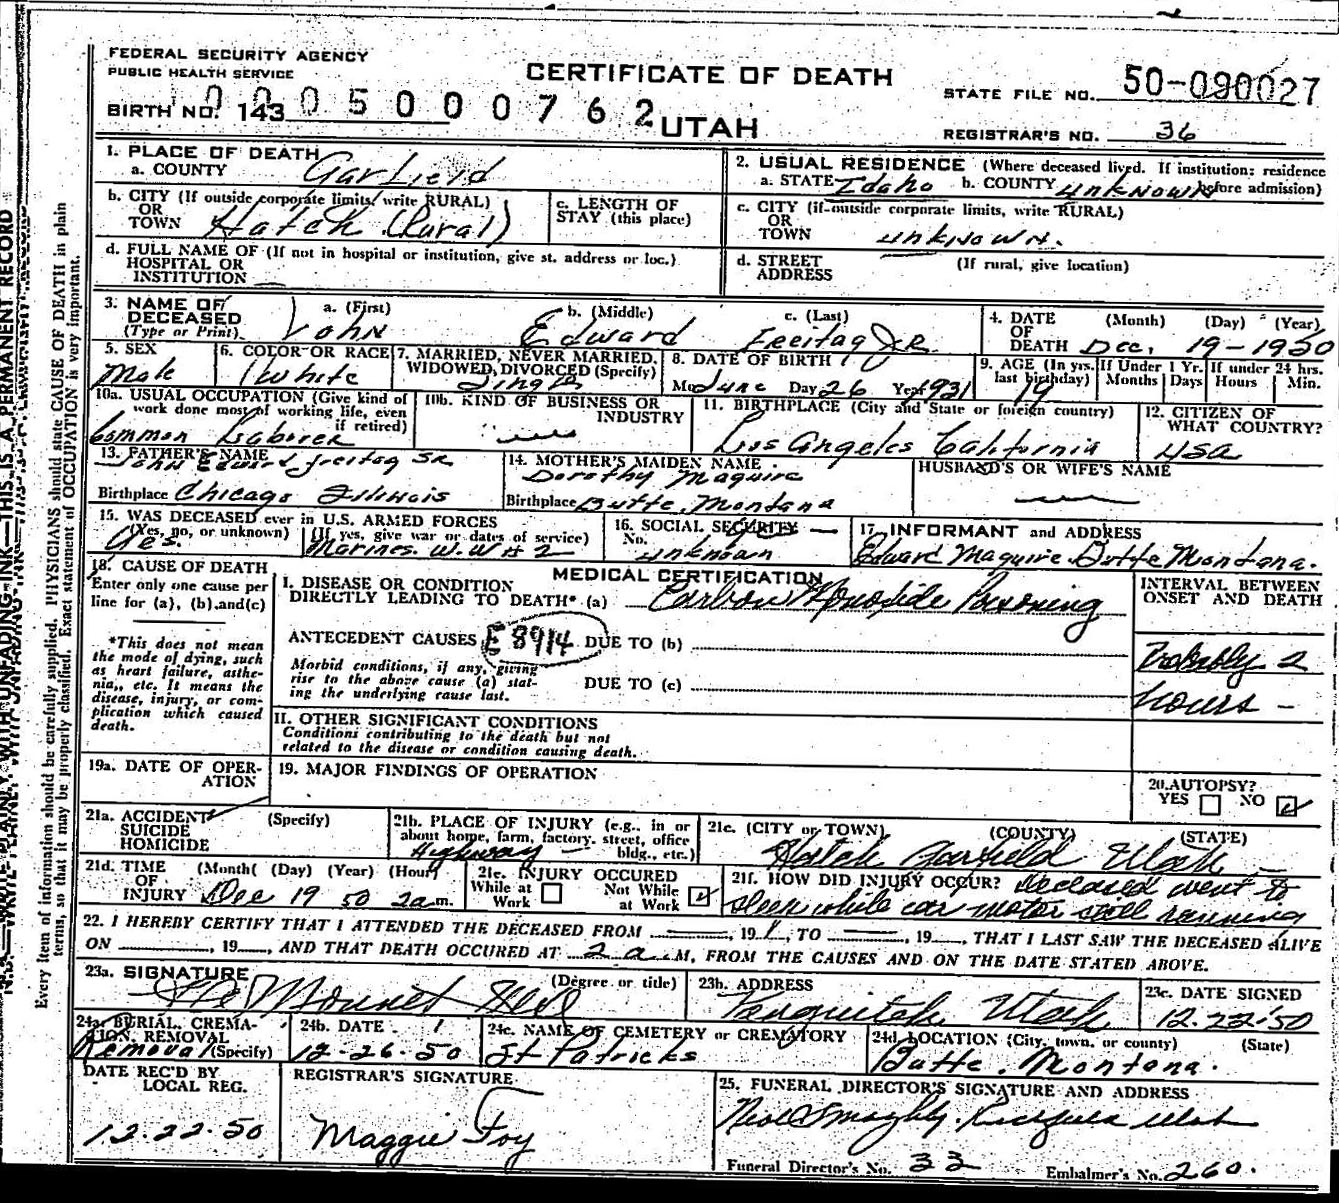 FEDERAL SECURITY AGENCY
PUBLIC HEALTH SERVICE
CERTIFICATE OF DEATH
STATE FILE NO. 50-090027
BIRTH NO. 143 0005000762
UTAH
REGISTRAR'S NO. 36
1. PLACE OF DEATH
a. COUNTY Garfield
2. USUAL RESIDENCE (Where deceased lived. If institution: residence before admission)
a. STATE Idaho b. COUNTY unknown
b. CITY (If outside corporate limits, write RURAL) OR TOWN Hatch (Rural)
c. LENGTH OF STAY (this place)
c. CITY (if outside corporate limits, write RURAL) OR TOWN unknown.
d. FULL NAME OF (If not in hospital or institution, give st. address or loc.) HOSPITAL OR INSTITUTION
d. STREET ADDRESS (If rural, give location)
3. NAME OF DECEASED (Type or Print)
a. (First) John
b. (Middle) Edward
c. (Last) Freitag Jr.
4. DATE OF DEATH (Month) (Day) (Year) Dec. 19-1950
5. SEX Male
6. COLOR OR RACE White
7. MARRIED, NEVER MARRIED, WIDOWED, DIVORCED (Specify) Single
8. DATE OF BIRTH Mo. June Day 26 Yr. 1931
9. AGE (In yrs. last birthday) 19
If Under 1 Yr. Months Days
If under 24 hrs. Hours Min.
10a. USUAL OCCUPATION (Give kind of work done most of working life, even if retired) Common Laborer
10b. KIND OF BUSINESS OR INDUSTRY
11. BIRTHPLACE (City and State or foreign country) Los Angeles California
12. CITIZEN OF WHAT COUNTRY? USA
13. FATHER'S NAME John Edward Freitag Sr
Birthplace Chicago Illinois
14. MOTHER'S MAIDEN NAME Dorothy Maguire
Birthplace Butte, Montana
HUSBAND'S OR WIFE'S NAME
15. WAS DECEASED ever in U.S. ARMED FORCES
(Yes, no, or unknown) Yes.
(If yes, give war or dates of service) Marines. W.W # 2
16. SOCIAL SECURITY No. unknown
17. INFORMANT and ADDRESS
Edward Maguire. Butte Montana.
18. CAUSE OF DEATH
Enter only one cause per line for (a), (b), and (c)
*This does not mean the mode of dying, such as heart failure, asthenia, etc. It means the disease, injury, or complication which caused death.
MEDICAL CERTIFICATION
I. DISEASE OR CONDITION DIRECTLY LEADING TO DEATH* (a) Carbon Monoxide Poisoning
ANTECEDENT CAUSES E 8914 DUE TO (b)
Morbid conditions, if any, giving rise to the above cause (a) stating the underlying cause last.
DUE TO (c)
II. OTHER SIGNIFICANT CONDITIONS
Conditions contributing to the death but not related to the disease or condition causing death.
INTERVAL BETWEEN ONSET AND DEATH
Probably 2 hours -
19a. DATE OF OPERATION
19. MAJOR FINDINGS OF OPERATION
20. AUTOPSY? YES NO
21a. ACCIDENT SUICIDE HOMICIDE (Specify)
21b. PLACE OF INJURY (e.g., in or about home, farm, factory, street, office bldg., etc.) Highway
21c. (CITY or TOWN) (COUNTY) (STATE)
Hatch Garfield Utah
21d. TIME OF INJURY (Month) (Day) (Year) (Hour) Dec 19 50 2 a m.
21e. INJURY OCCURED
While at Work Not While at Work
21f. HOW DID INJURY OCCUR? Deceased went to
sleep while car motor still running
22. I HEREBY CERTIFY THAT I ATTENDED THE DECEASED FROM , 19 , TO , 19 , THAT I LAST SAW THE DECEASED ALIVE
ON , 19 , AND THAT DEATH OCCURED AT 2 a. M, FROM THE CAUSES AND ON THE DATE STATED ABOVE.
23a. SIGNATURE (Degree or title)
23b. ADDRESS Utah
23c. DATE SIGNED 12-22-50
24a. BURIAL, CREMATION, REMOVAL (Specify) Removal
24b. DATE 12-26-50
24c. NAME OF CEMETERY or CREMATORY St Patricks
24d. LOCATION (City, town, or county) (State) Butte, Montana.
DATE REC'D BY LOCAL REG. 12.22.50
REGISTRAR'S SIGNATURE
Maggie Foy
25. FUNERAL DIRECTOR'S SIGNATURE AND ADDRESS
Utah
Funeral Director's No. 33 Embalmer's No. 260.
Every item of information should be carefully supplied. PHYSICIANS should state CAUSE OF DEATH in plain
terms, so that it may be properly classified. Exact statement of OCCUPATION is very important.
N.B.—WRITE PLAINLY WITH UNFADING INK—THIS IS A PERMANENT RECORD